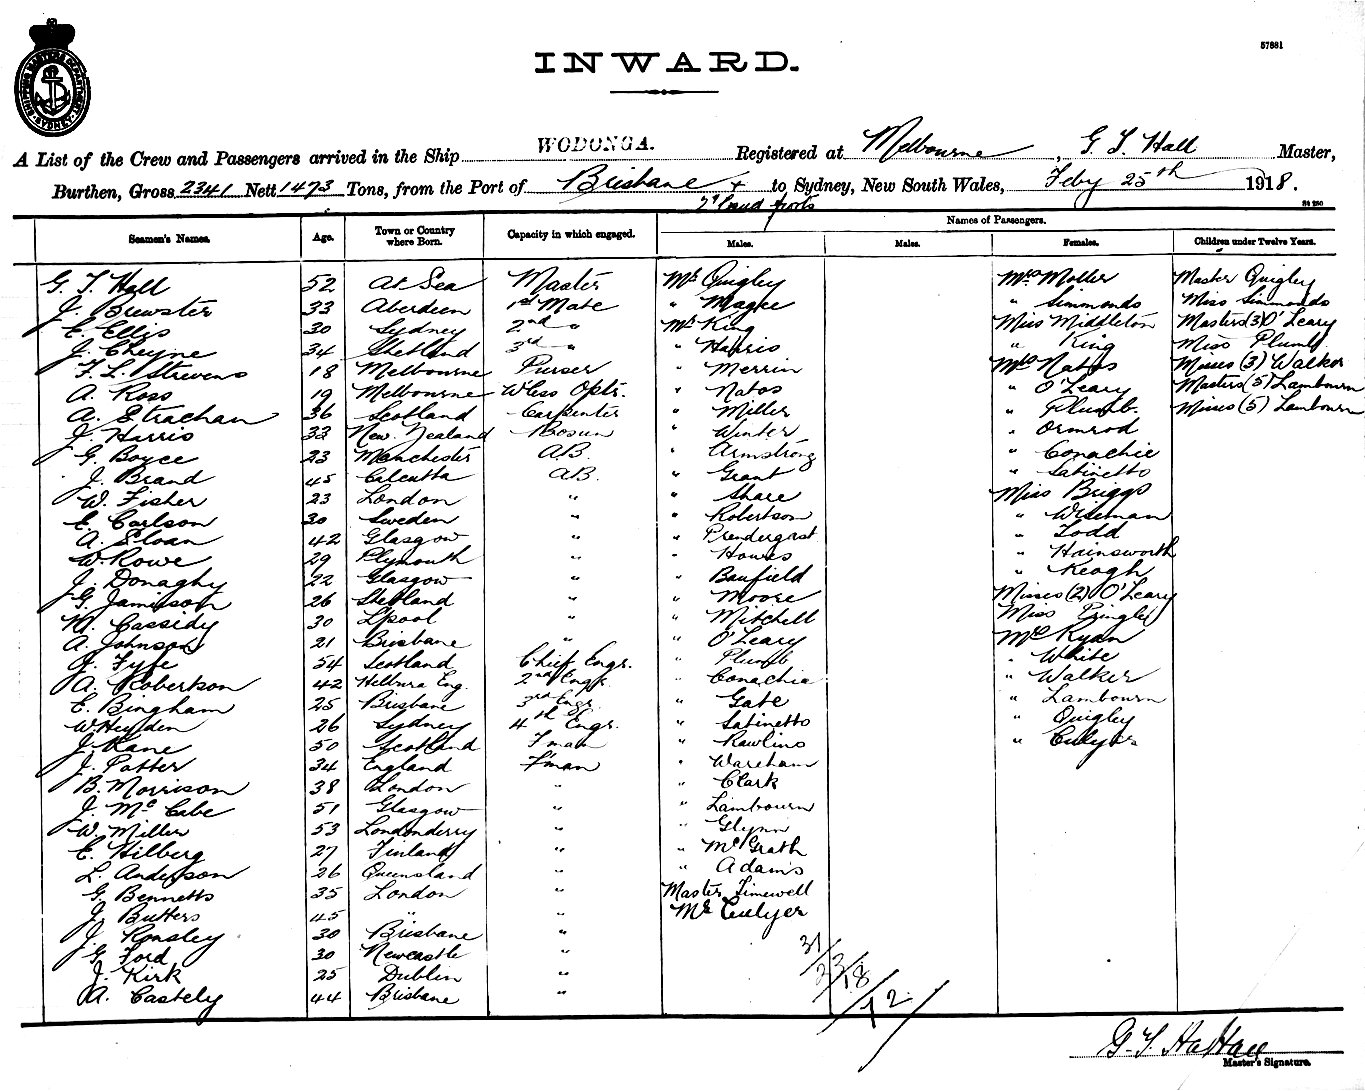 57881
SHIPPING MASTER'S DEPARTMENT
SYDNEY
INWARD.
A List of the Crew and Passengers arrived in the Ship WODONGA. Registered at Melbourne, G. T. Hall Master,
Burthen, Gross 2341 Nett 1473 Tons, from the Port of Brisbane + to Sydney, New South Wales, Feby 25th 1918.
Q'land ports
Names of Passengers.
Seamen's Names. Age. Town or Country where Born. Capacity in which engaged. Males. Males. Females. Children under Twelve Years.
G. T. Hall 52 At Sea Master Mr Quigley Mrs Moller Master Quigley
J. Brewster 33 Aberdeen 1st Mate " Magee " Simmonds Miss Simmonds
E. Ellis 30 Sydney 2nd " Mr King Miss Middleton Masters (3) O'Leary
J. Cheyne 34 Shetland 3rd " " Harris " King Miss Plumb
F. L. Strevens 18 Melbourne Purser " Merrin Mrs Natos Misses (3) Walker
A. Ross 19 Melbourne W'less Optr. " Natos " O'Leary Masters (5) Lambourn
A. Strachan 36 Scotland Carpenter " Miller " Plumb. Misses (5) Lambourn
J. Harris 33 New Zealand Bosun " Winter " Ormrod
G. Boyce 23 Manchester AB. " Armstrong " Conachie
J. Brand 45 Calcutta AB. " Grant " Sabinetto
W. Fisher 23 London " " Share Miss Briggs
E. Carlson 30 Sweden " " Robertson " Wiseman
A. Sloan 42 Glasgow " " Prendergast " Todd
W. Rowe 29 Plymouth " " Howes " Hainsworth
J. Donaghy 22 Glasgow " " Banfield " Keogh
G. Jamieson 26 Shetland " " Moore Misses (2) O'Leary
W. Cassidy 30 L'pool " " Mitchell Miss Pringley
A. Johnson 21 Brisbane " " O'Leary Mrs Ryan
J. Fyfe 54 Scotland Chief Engr. " Plumb " White
A. Robertson 42 Hilburn Eng. 2nd Engr. " Conachie " Walker
E. Bingham 25 Brisbane 3rd Engr. " Gate " Lambourn
W. Heyden 26 Sydney 4th Engr. " Sabinetto " Quigley
J. Kane 50 Scotland F'man " Rawlins " Culyer
J. Potter 34 England F'man " Wareham
B. Morrison 38 London " " Clark
J. McCabe 51 Glasgow " " Lambourn
W. Miller 53 Londonderry " " Glynn
E. Hilberg 27 Finland " " McGrath
L. Anderson 26 Queensland " " Adams
G. Bennetts 35 London " Master Timewell
J. Butters 45 " " Mr Culyer
J. Ronsley 30 Brisbane "
G. Ford 30 Newcastle "
J. Kirk 25 Dublin "
A. Castely 44 Brisbane "
31/23/18/12.
G. T. Hall
Master's Signature.